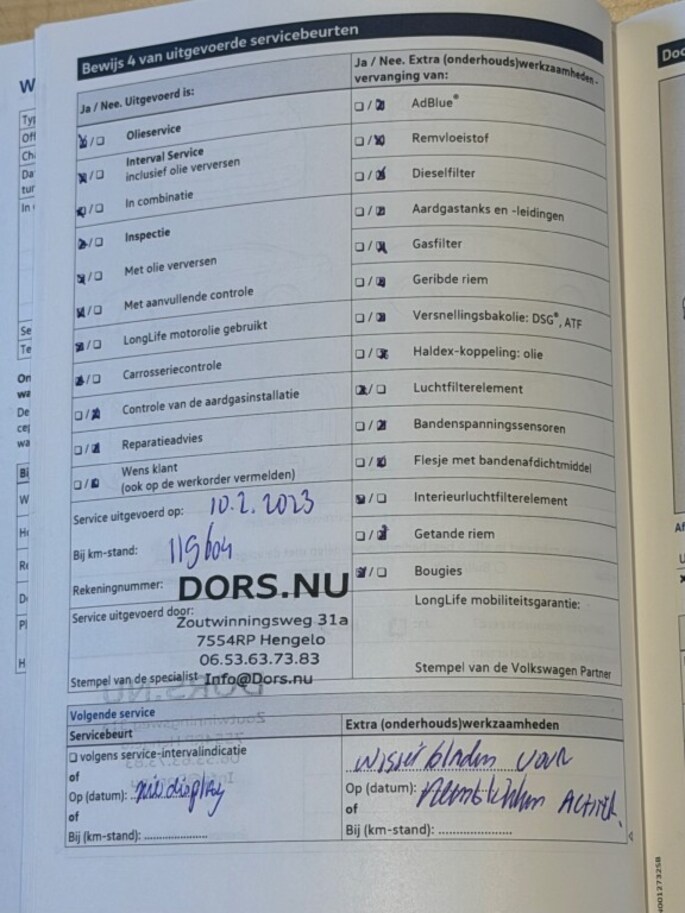 Bewijs 4 van uitgevoerde servicebeurten
Ja / Nee. Uitgevoerd is:
Olieservice
Interval Service
inclusief olie verversen
In combinatie
Inspectie
Met olie verversen
Met aanvullende controle
LongLife motorolie gebruikt
Carrosseriecontrole
Controle van de aardgasinstallatie
Reparatieadvies
Wens klant
(ook op de werkorder vermelden)
Service uitgevoerd op: 10.2.2023
Bij km-stand:
Rekeningnummer:
DORS.NU
Service uitgevoerd door:
Zoutwinningsweg 31a
7554RP Hengelo
06.53.63.73.83
Stempel van de specialist Info@Dors.nu
Ja / Nee. Extra (onderhouds)werkzaamheden -
vervanging van:
AdBlue®
Remvloeistof
Dieselfilter
Aardgastanks en -leidingen
Gasfilter
Geribde riem
Versnellingsbakolie: DSG®, ATF
Haldex-koppeling: olie
Luchtfilterelement
Bandenspanningssensoren
Flesje met bandenafdichtmiddel
Interieurluchtfilterelement
Getande riem
Bougies
LongLife mobiliteitsgarantie:
Stempel van de Volkswagen Partner
Volgende service
Servicebeurt
volgens service-intervalindicatie
of
Op (datum): zie display
of
Bij (km-stand): ....................
Extra (onderhouds)werkzaamheden
wisserbladen voor
Op (datum): ACHTER.
of
Bij (km-stand): ....................